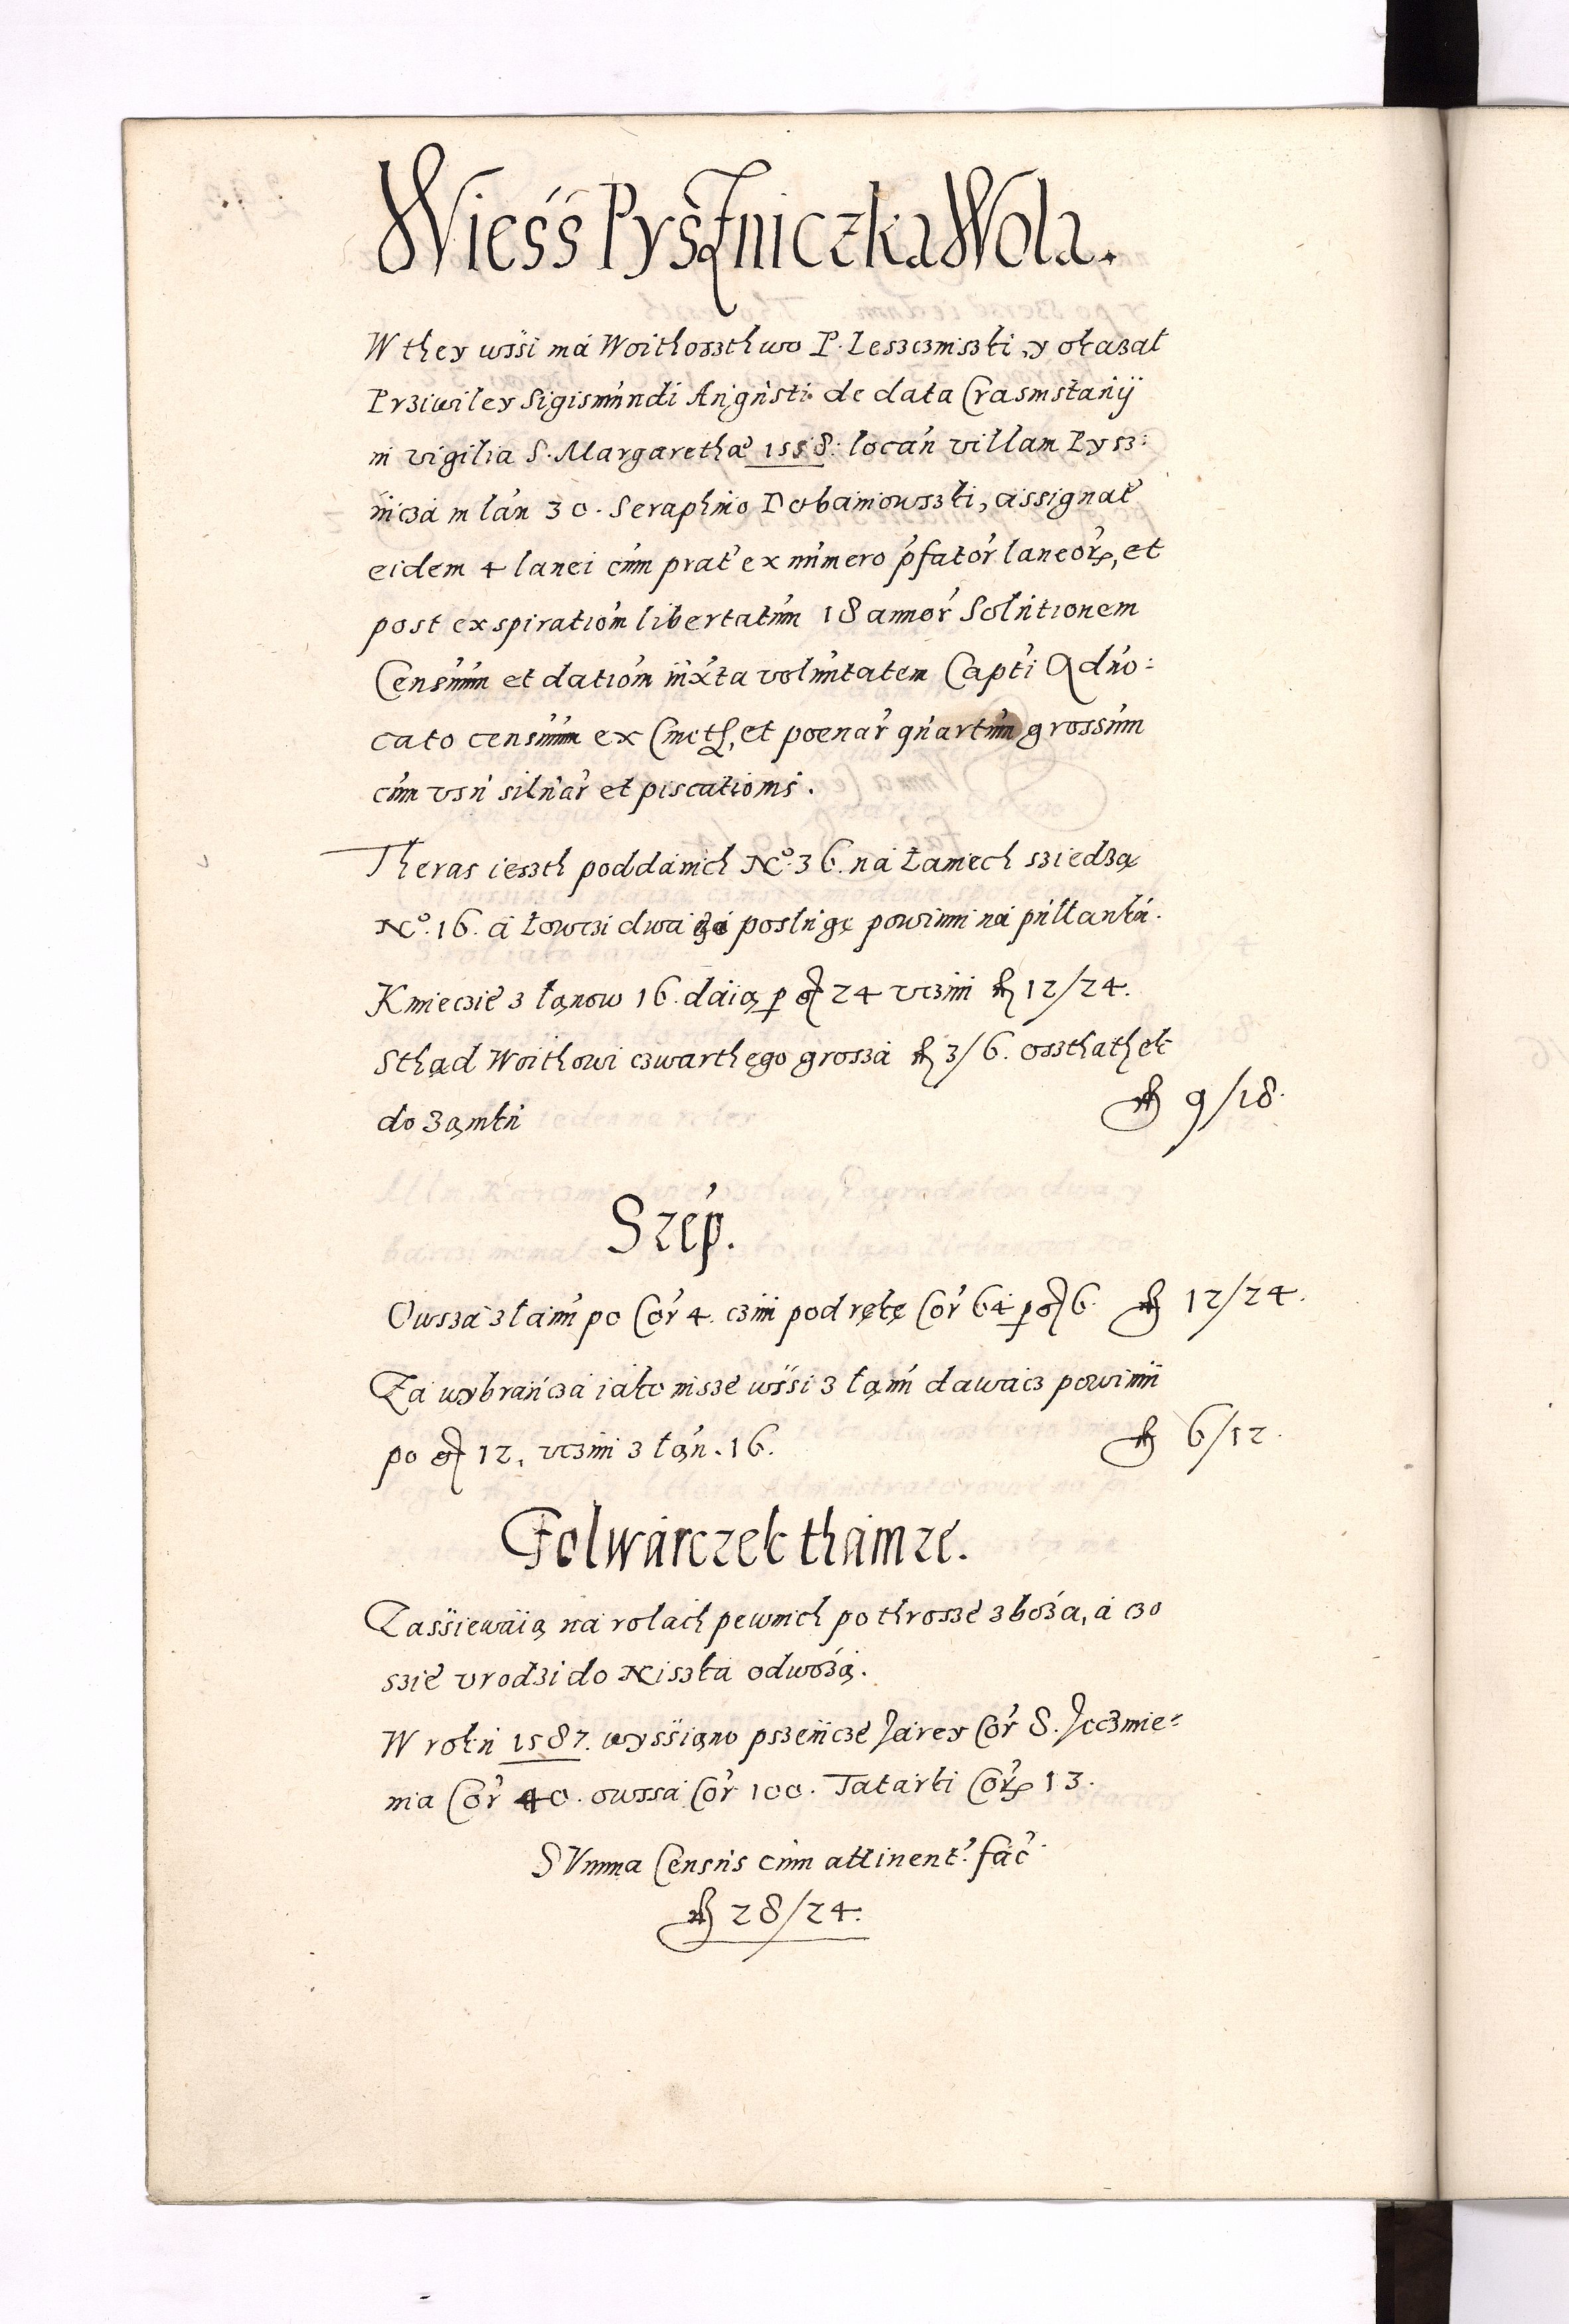 Wieśś Pyśzniczka Wola.
W they wśsi má Woithowszthwo P. Leszczinszki, y okazał
Prziwiley Sigismundi Augusti de data Crasnistauÿ
in vigilia S. Margarethæ 1558: locan villam Pysz:
niczá in lan 30. Seraphino Dobaniowszki, assignat
eidem 4 lanei cum prat ex numero pfator laneor, et
post exspiration libertatum 18 annor Solutionem
Censuum et dation iuxta voluntatem Capti Aduo:
cato censuum ex Cmeth, et poenar quartum grossum
cum vsu siluar et piscationis.
Theras ieszth poddanich No. 36. ná Łaniech sziedzą
No. 16. á Łowczi dwá zá poslugę powinni ná pułłanku.
Kmieczie z łąnow 16. dáią p gr 24 vczini fl 12/24.
Sthąd Woithowi czwarthego groszá fl 3/6. oszthathek
do Ząmku fl 9/18.
Szép.
Owszá z łanu po Cor 4. czini pod rękę Cor 64 p gr 6. fl 12/24.
Zá wybráńczá iáko insze wśsi z łąnu dawácz powinni
po gr 12. vczini z łąn. 16. fl 6/12.
Folwárczek thámze.
Zaśsiewáią ná rolách pewnich po throsze zboża, á czo
szie vrodzi do Niszká odwożą.
W roku 1587. wyśsiąno pszenicze Járey Cor 8. Jęczmie=
nia Cor 40. owssá Cor 100. Tatárki Cor 13.
SVmma Census cum attinent. fac
fl 28/24.